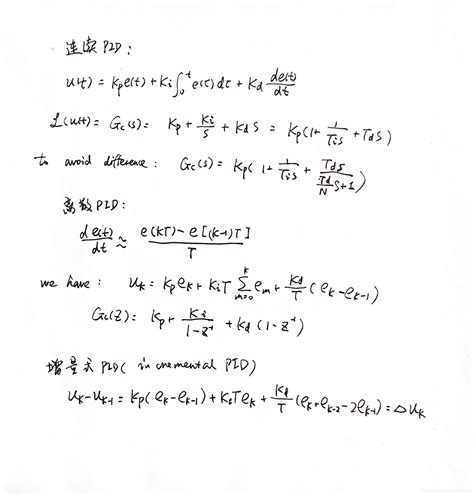 连续PID:
u(t) = Kpe(t) + Ki∫₀ᵗe(τ)dτ + Kd de(t)/dt
ℒ(u(t)) = Gc(s) = Kp + Ki/s + Kds = Kp(1 + 1/Tis + Tds)
to avoid difference: Gc(s) = Kp(1 + 1/Tis + Tds/(Td/N s+1))
离散PID:
de(t)/dt ≈ e(kT) − e[(k−1)T]/T
we have: uk = Kpek + KiT Σ(m=0→k) em + Kd/T (ek − ek−1)
Gc(z) = Kp + Ki/(1−z⁻¹) + Kd(1−z⁻¹)
增量式PID(incremental PID)
uk − uk−1 = Kp(ek − ek−1) + KiTek + Kd/T (ek + ek−2 − 2ek−1) = △uk